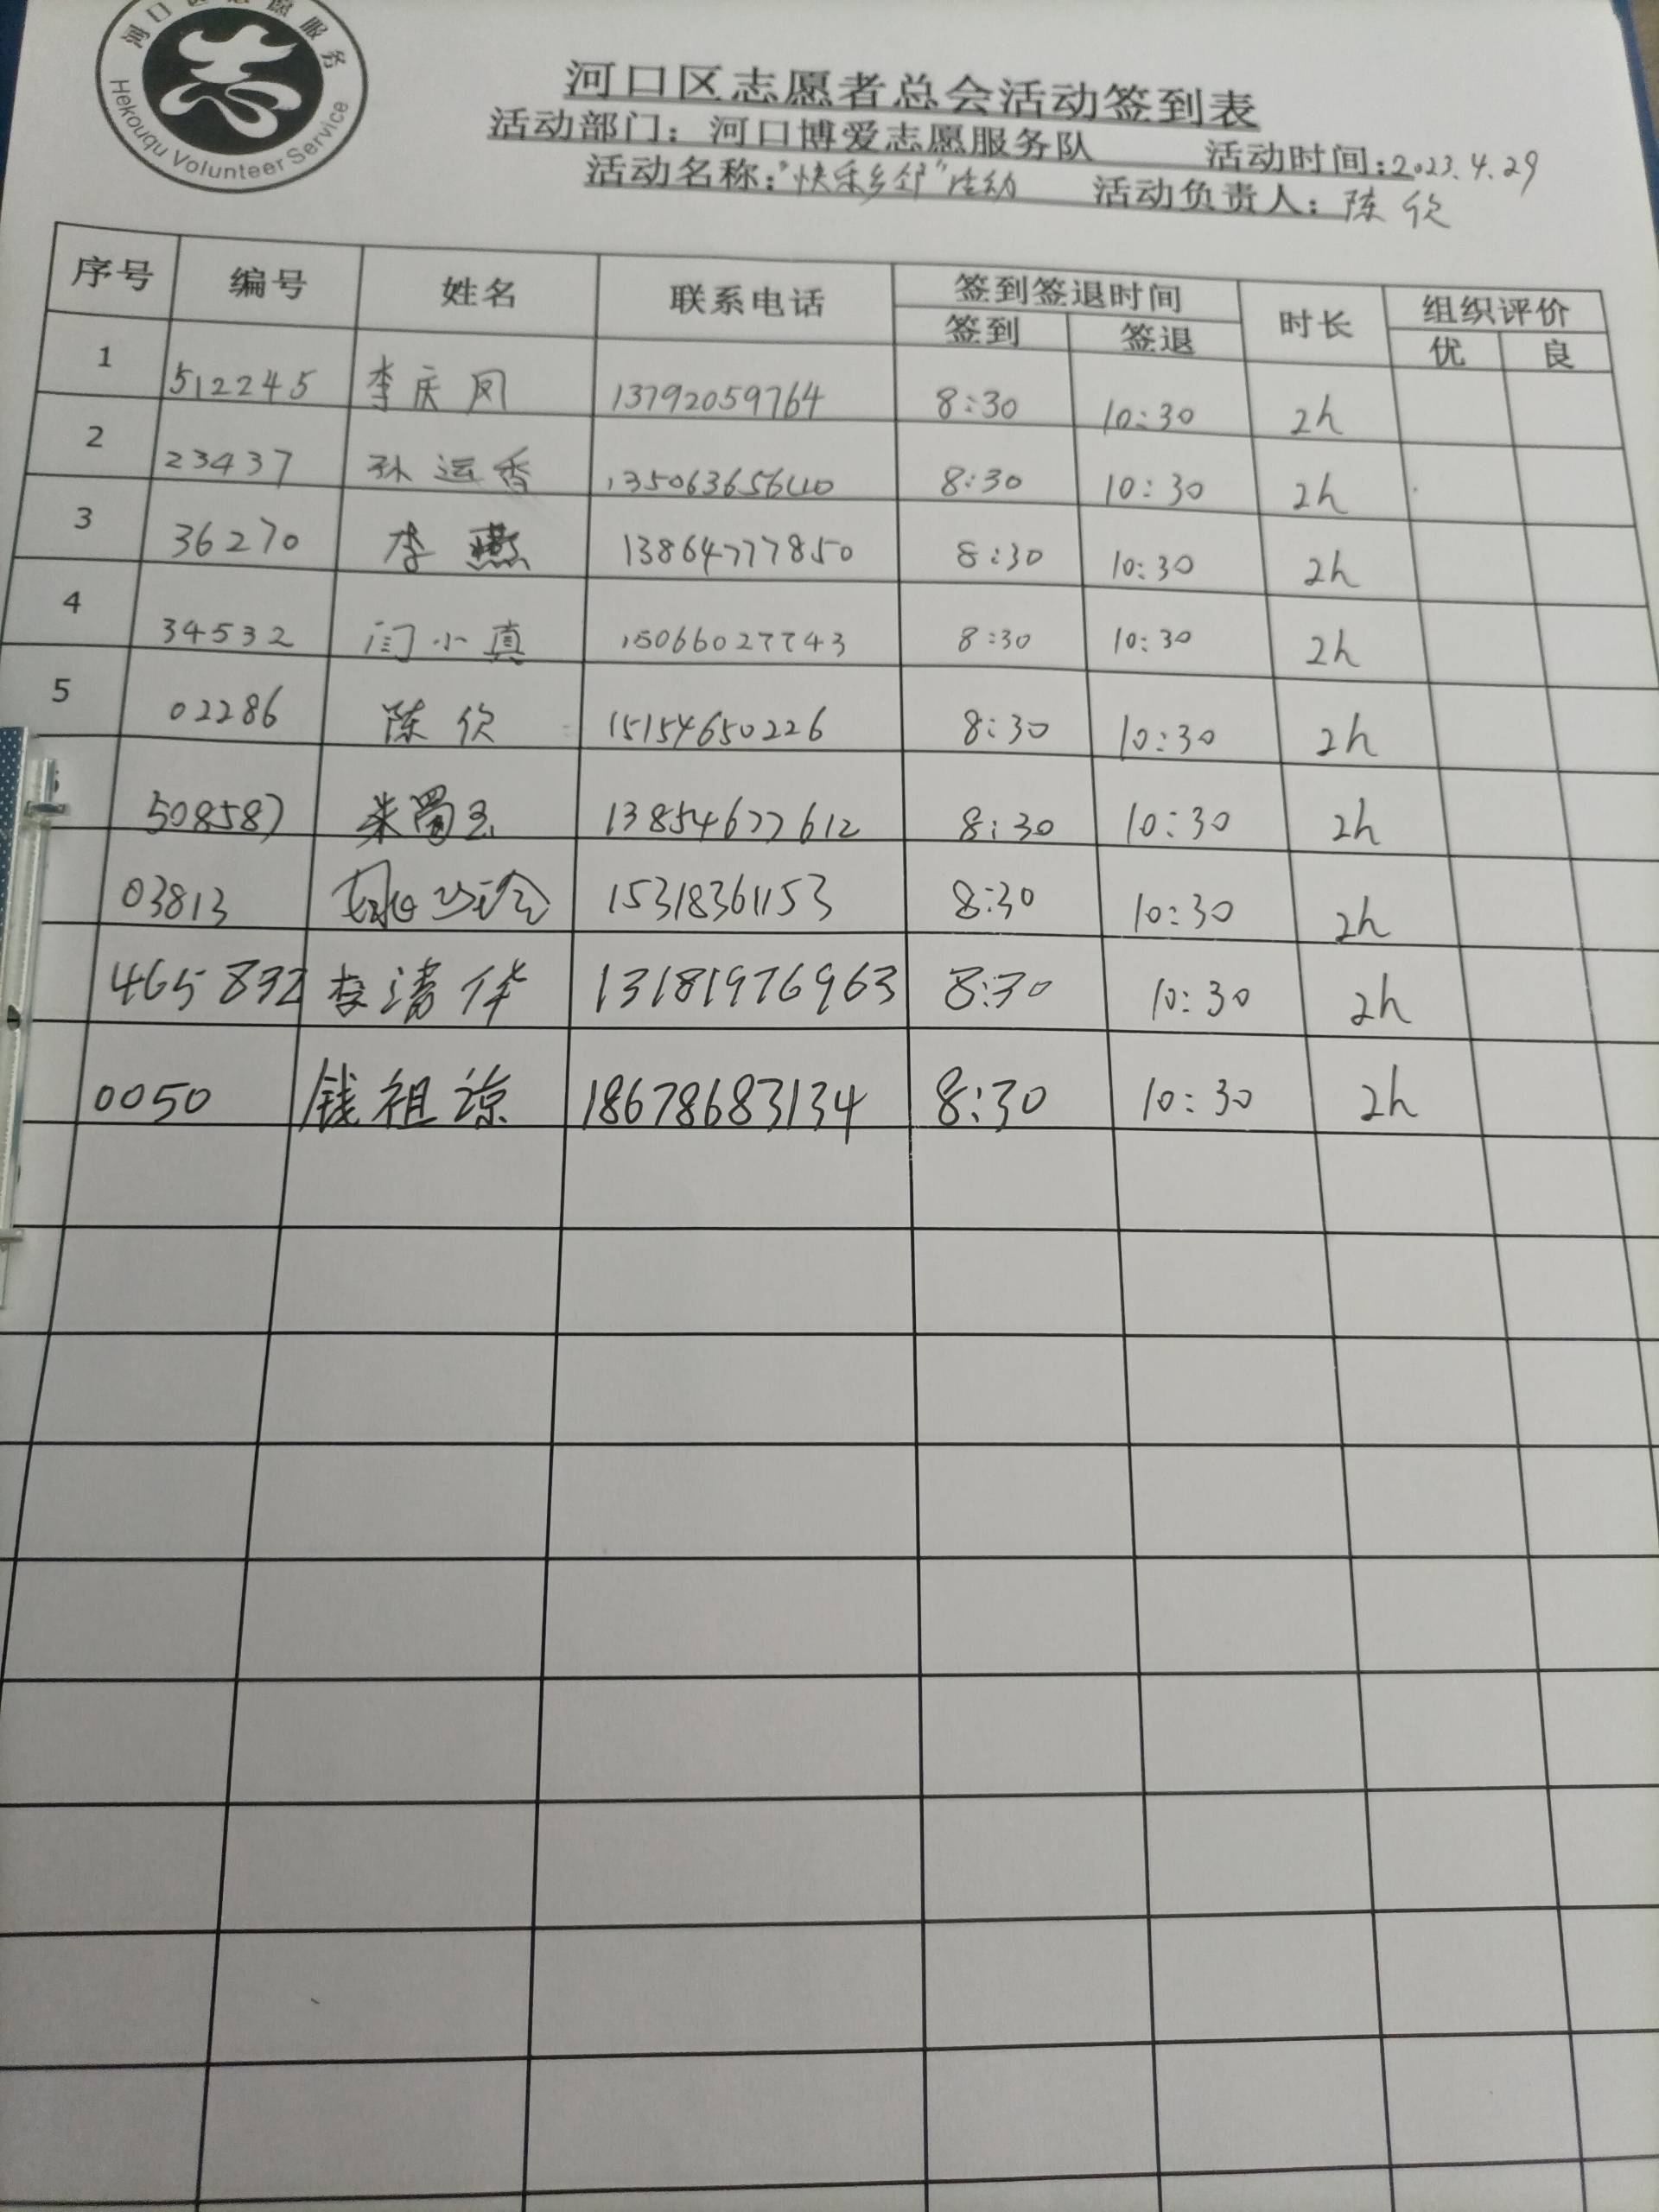 河口区志愿服务
Hekouqu Volunteer Service
河口区志愿者总会活动签到表
活动部门：河口博爱志愿服务队 活动时间：2023.4.29
活动名称："快乐乡邻"活动 活动负责人：陈欣
序号 编号 姓名 联系电话 签到签退时间 时长 组织评价
签到 签退 优 良
1 512245 李庆凤 13792059764 8:30 10:30 2h
2 23437 孙运香 8:30 10:30 2h
3 36270 李燕 13864777850 8:30 10:30 2h
4 34532 闫小真 15066027743 8:30 10:30 2h
5 02286 陈欣 15154650226 8:30 10:30 2h
508587 13854677612 8:30 10:30 2h
03813 15318361153 8:30 10:30 2h
465832 李清华 13181976963 8:30 10:30 2h
0050 钱祖谅 18678683134 8:30 10:30 2h